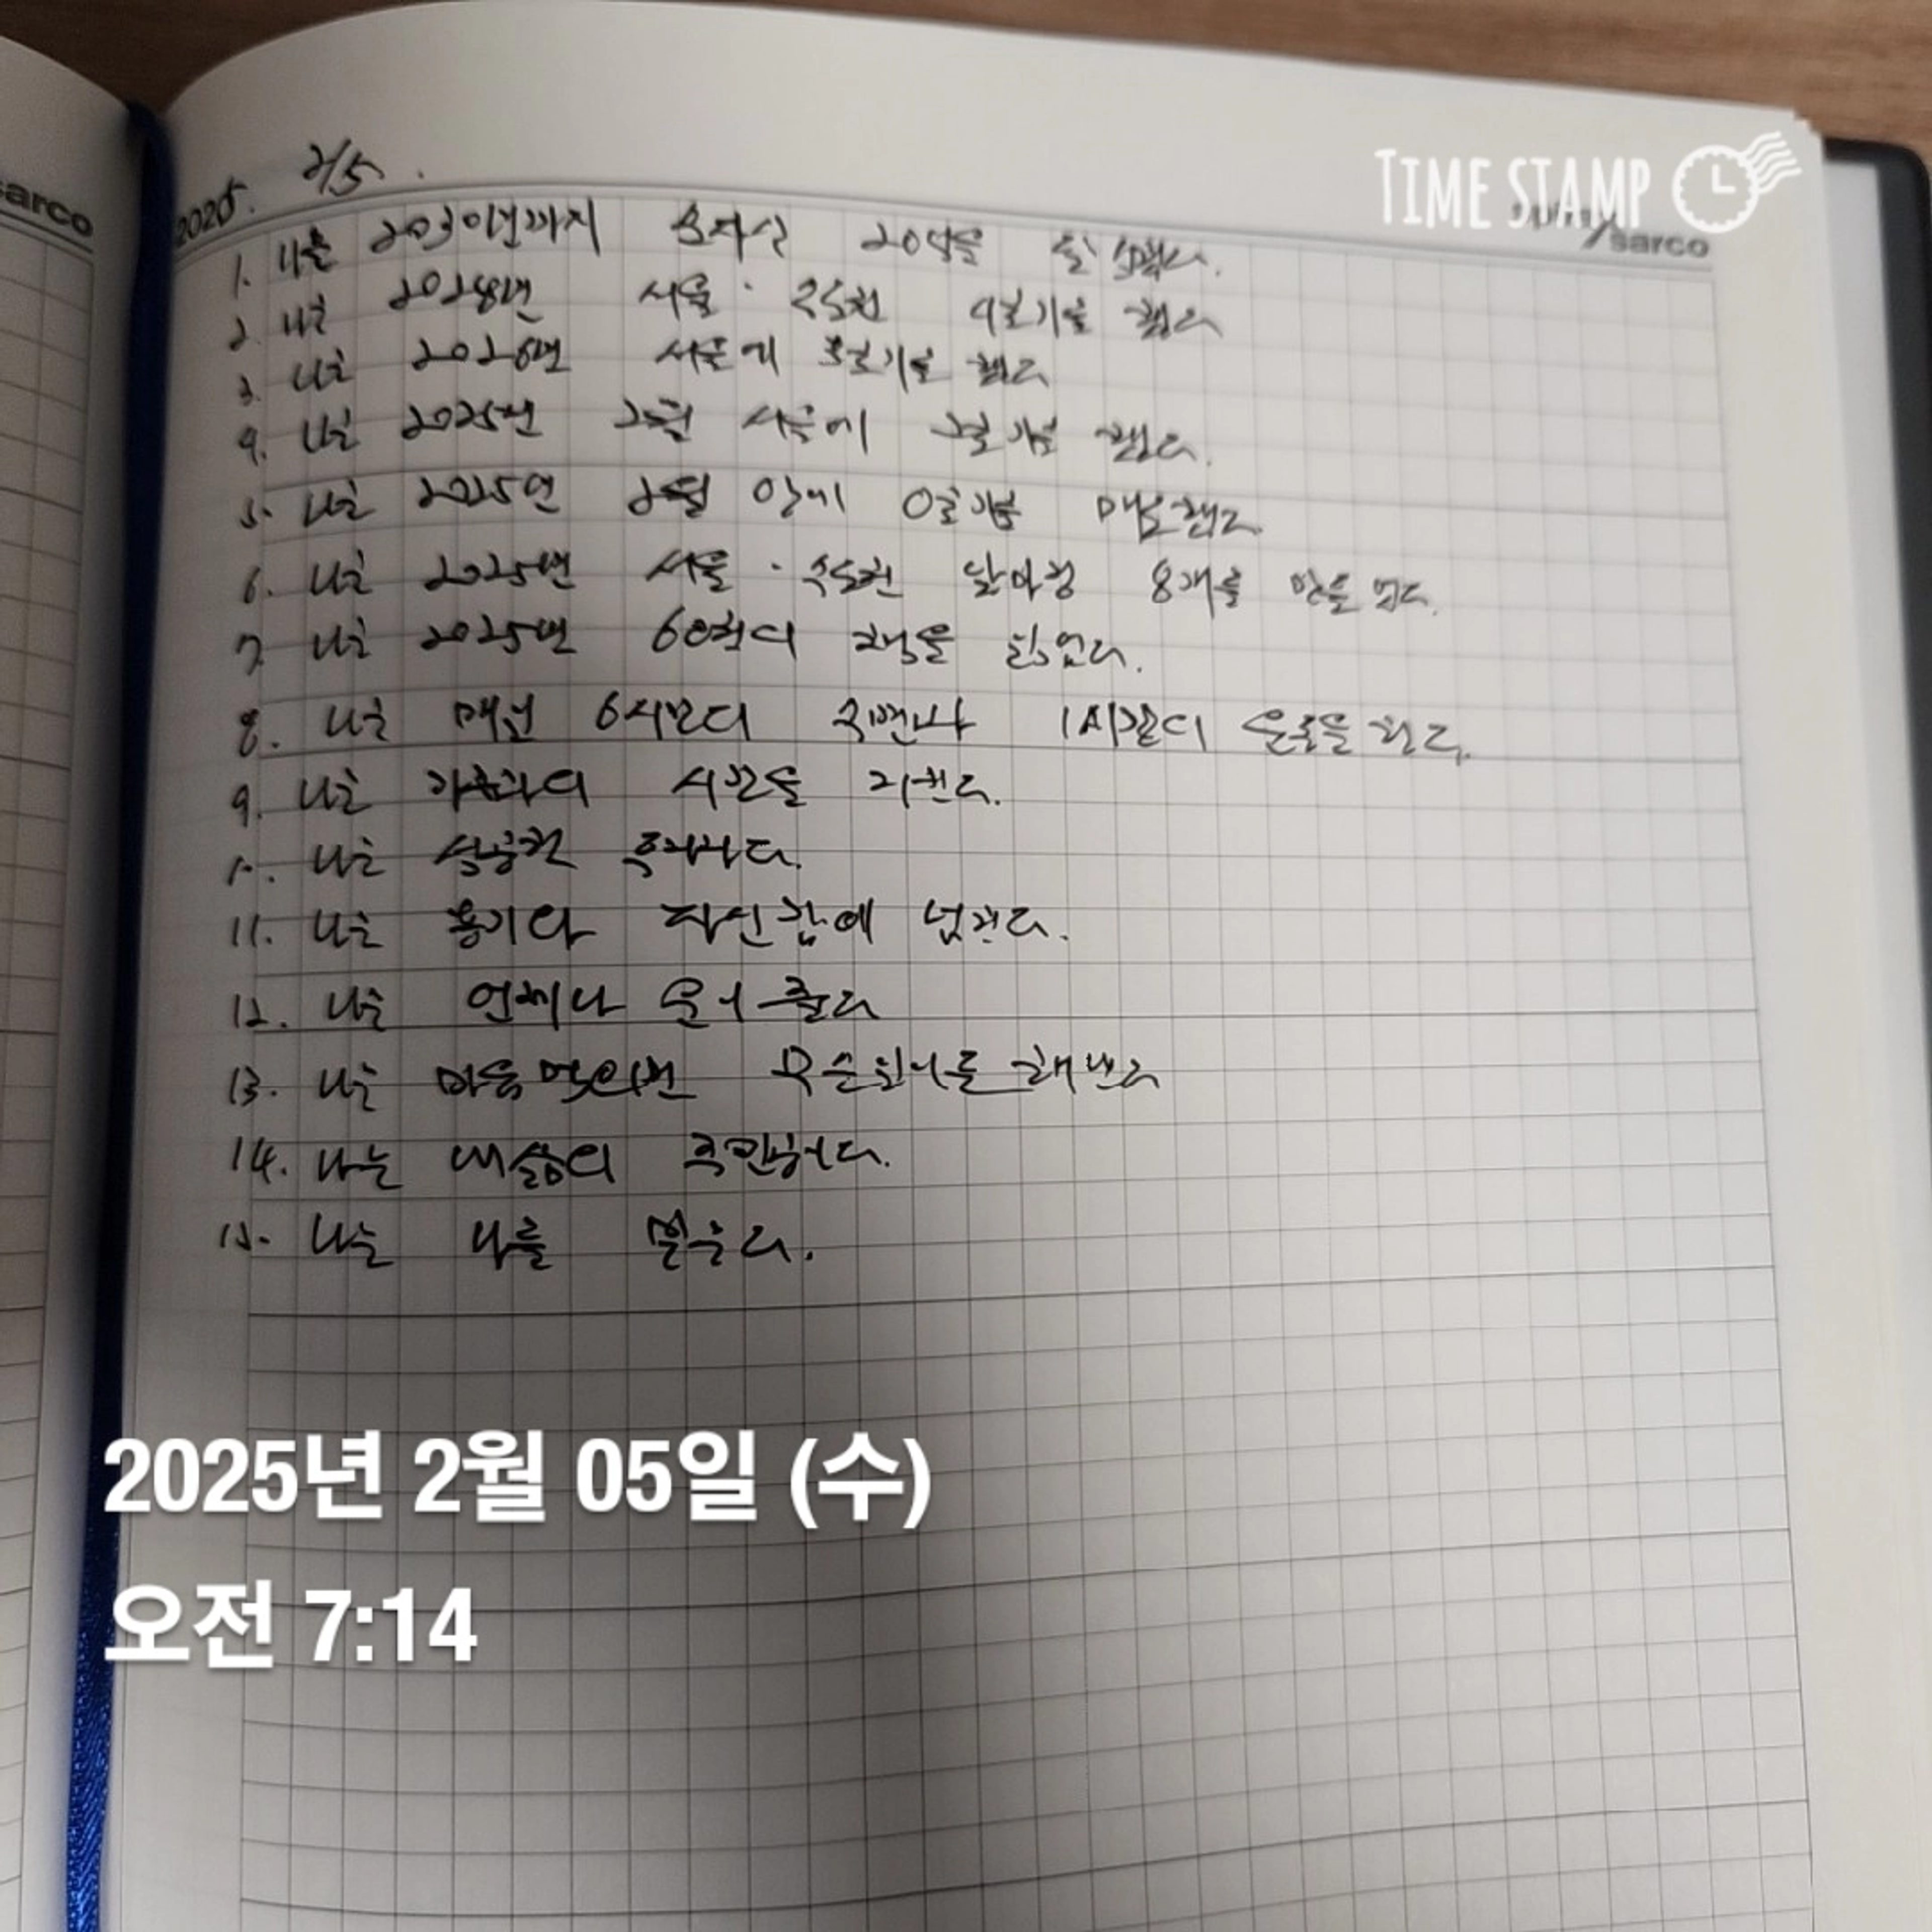 TIME STAMP
sarco
sarco
2025. 2/5.
1. 나는 2030년까지 순자산 20억을 달성했다.
2. 나는 2028년 서울·수도권 4호기를 했다
3. 나는 2026년 서울에 3호기를 했다
4. 나는 2025년 2월 서울에 2호기를 했다.
5. 나는 2025년 2월 안에 0호기를 매도했다
6. 나는 2025년 서울·수도권 앞마당 8개를 만들었다.
7. 나는 2025년 60권의 책을 읽었다.
8. 나는 매일 6시간의 수면과 1시간의 운동을 한다.
9. 나는 가족과의 시간을 지킨다.
10. 나는 성공한 투자자다.
11. 나는 용기와 자신감에 넘친다.
12. 나는 언제나 운이 좋다
13. 나는 마음먹으면 무슨일이든 해낸다
14. 나는 내삶의 주인공이다.
15. 나는 나를 믿는다.
2025년 2월 05일 (수)
오전 7:14